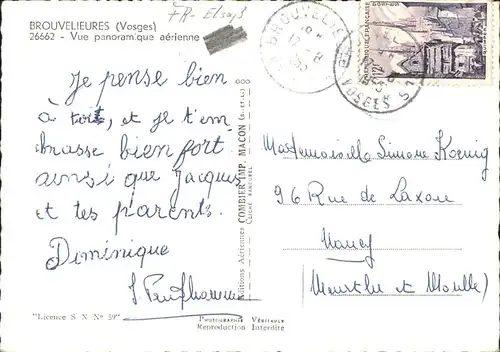 BROUVELIEURES (Vosges)
26662 - Vue panoramique aérienne
FR - Elsaß
BROUVELIE
VOSGES
RÉPUBLIQUE FRANÇAISE
Je pense bien
à toi, et je t'em-
brasse bien fort
ainsi que Jacques
et tes parents.
Dominique
Éditions Aériennes COMBIER IMP. MACON (S.-et-L.)
Mademoiselle Simone Koenig
96 Rue de Laxou
Nancy
Meurthe et Moselle)
"Licence S N N° 59"
Photographie Véritable
Reproduction Interdite